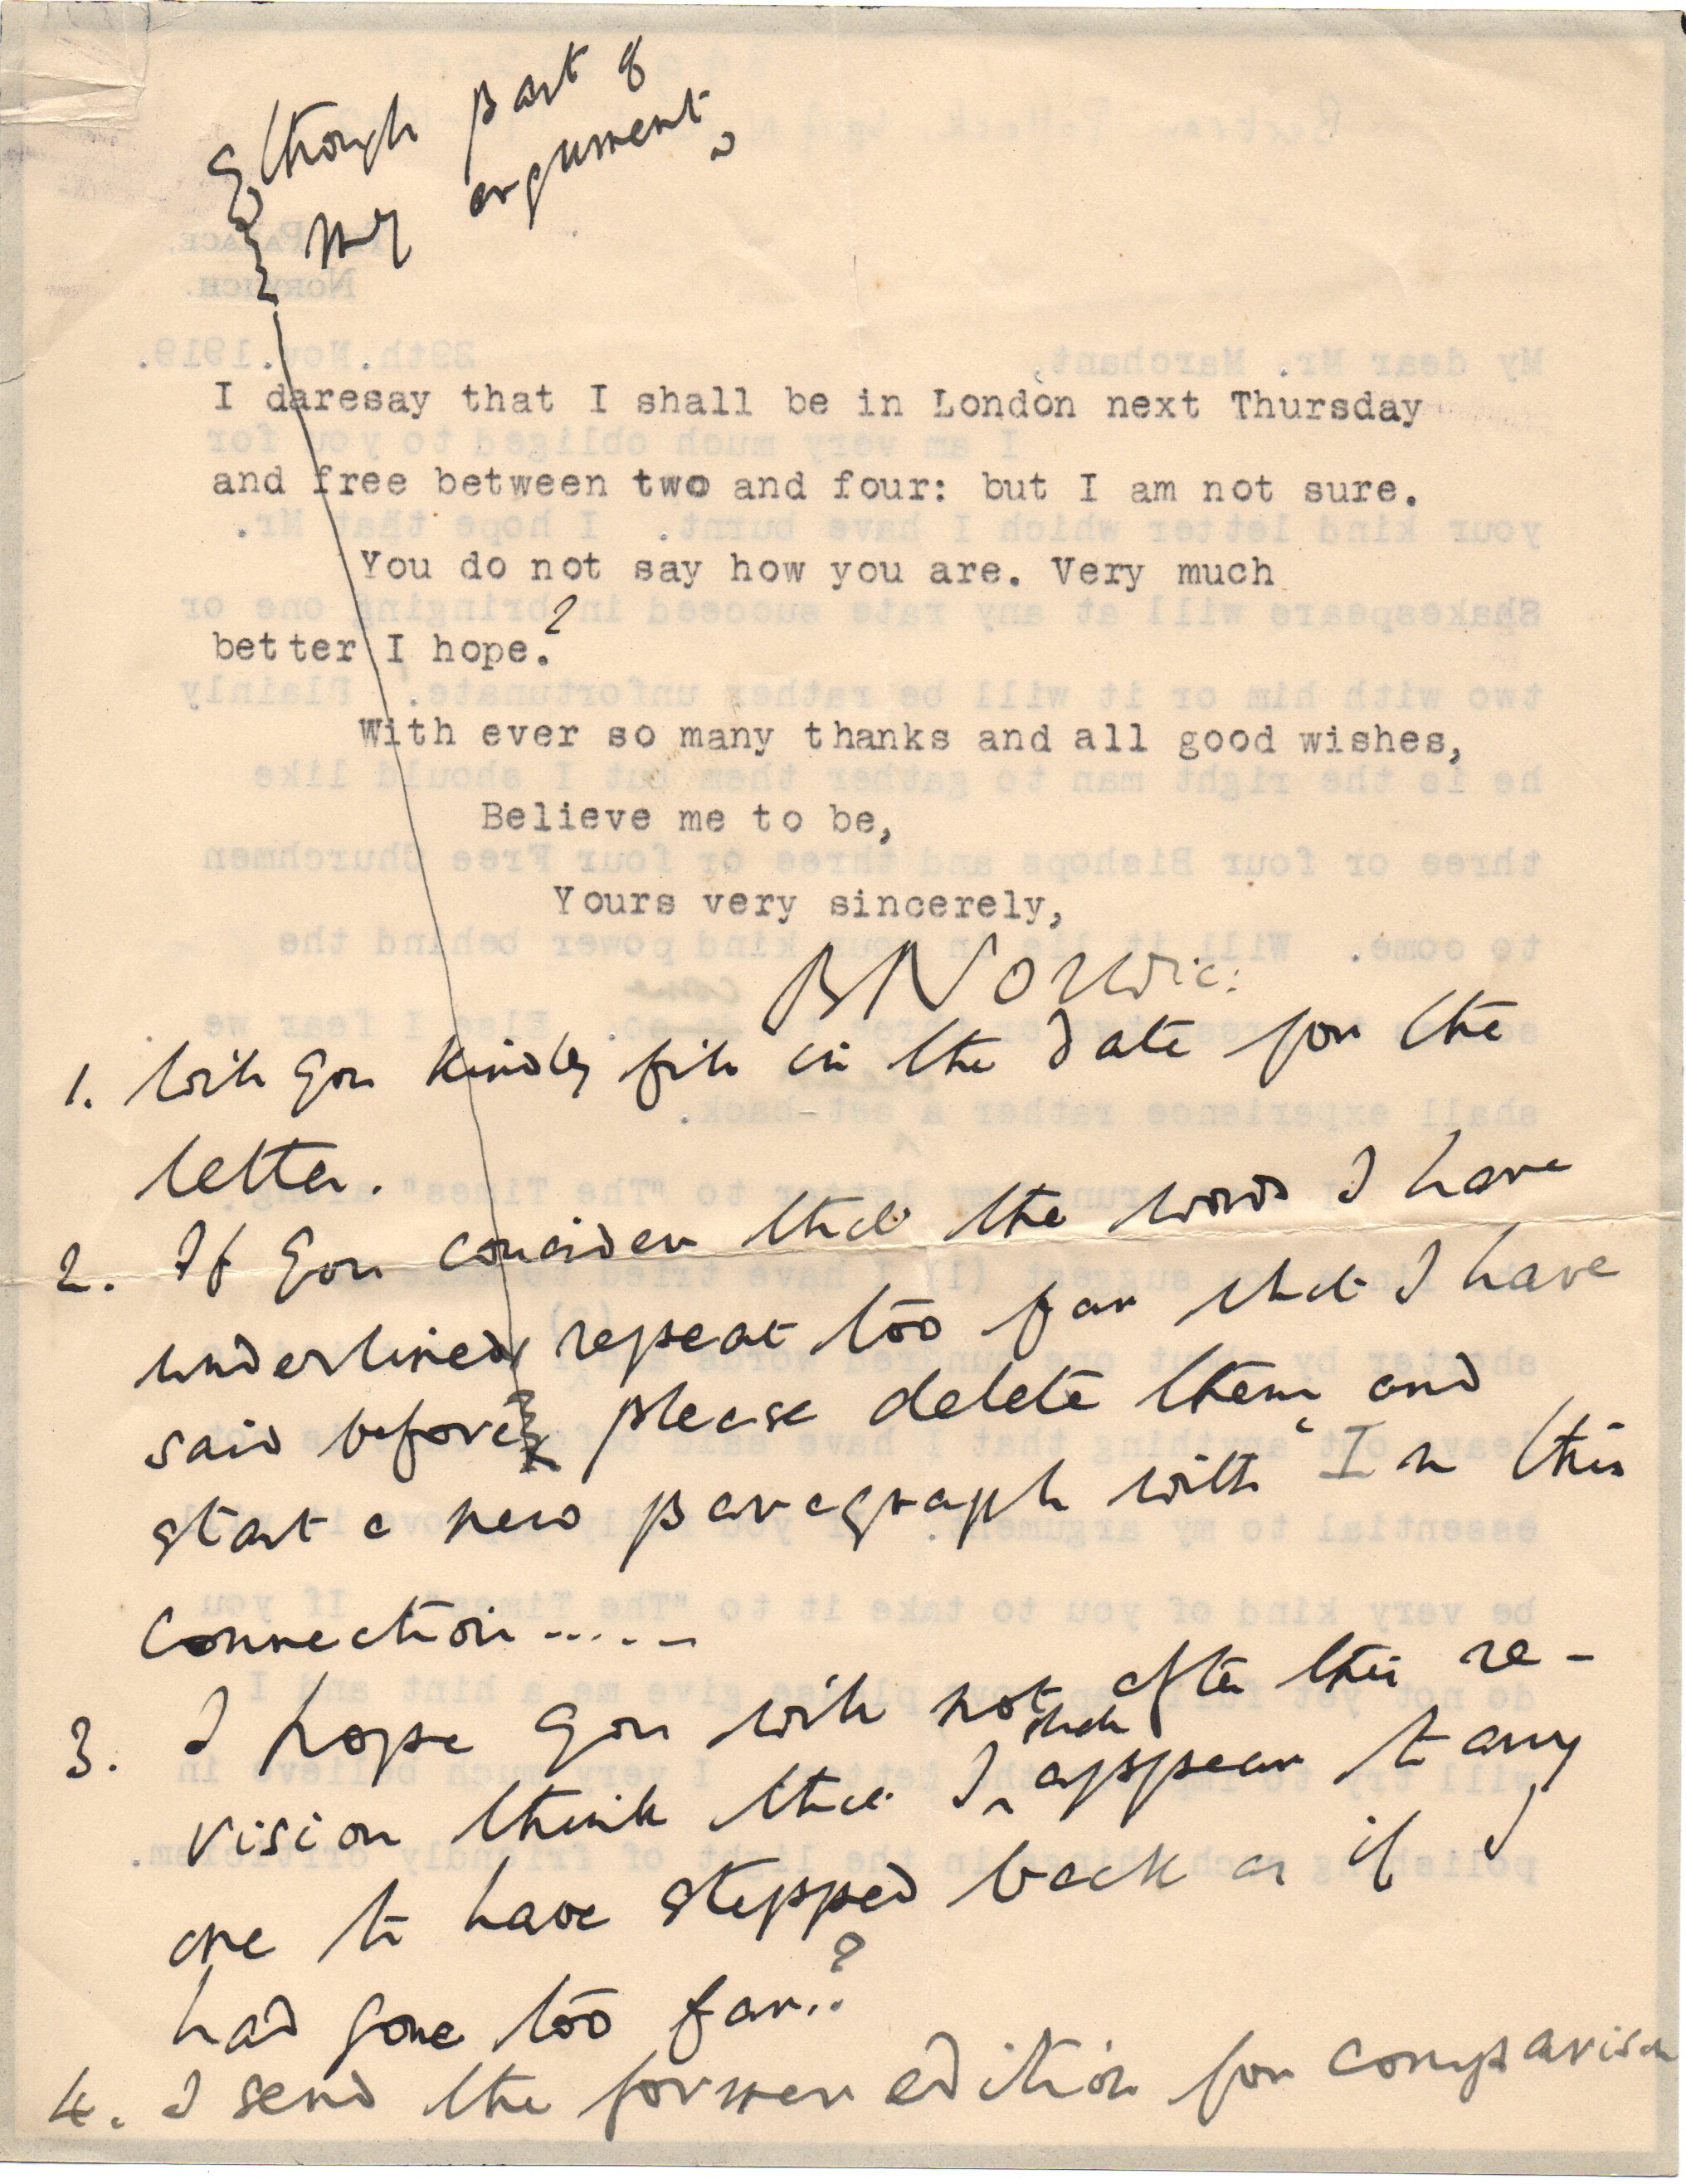 though part of
my argument
I daresay that I shall be in London next Thursday
and free between two and four: but I am not sure.
You do not say how you are. Very much
better I hope.?
With ever so many thanks and all good wishes,
Believe me to be,
Yours very sincerely,
B Norvic:
1. Will you kindly fill in the date for the
letter.
2. If you consider that the words I have
underlined repeat too far that I have
said before please delete them and
start a new paragraph with "In this
connection.....
3. I hope you will not after this re-
vision think that I shall appear to any
one to have stepped back as if I
had gone too far..?
4. I send the former edition for comparison